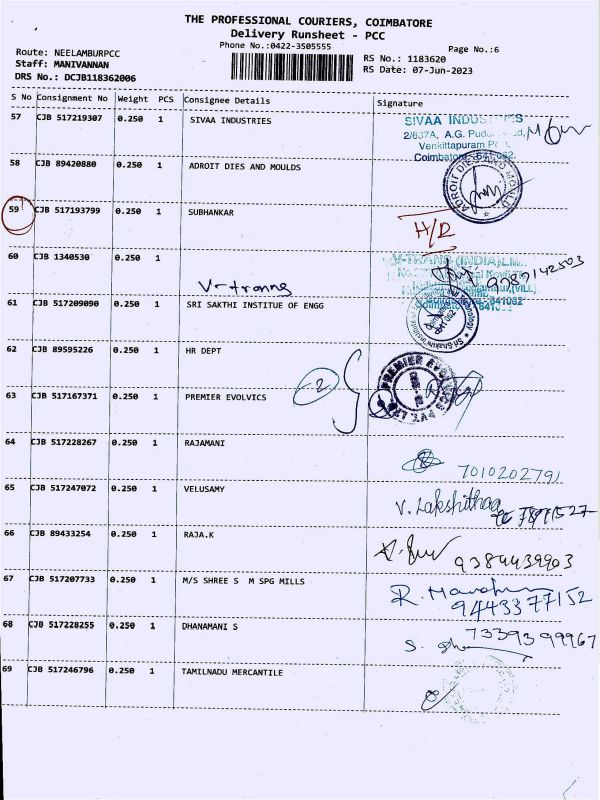 THE PROFESSIONAL COURIERS, COIMBATORE
Delivery Runsheet - PCC
Phone No.:0422-3505555
Page No.:6
Route: NEELAMBURPCC
Staff: MANIVANNAN
DRS No.: DCJB118362006
RS No.: 1183620
RS Date: 07-Jun-2023
S No Consignment No Weight PCS Consignee Details Signature
57 CJB 517219307 0.250 1 SIVAA INDUSTRIES
SIVAA INDUS
2/637A, A.G. Pudu
Venkittapuram
Coimbatore 641062
58 CJB 89420880 0.250 1 ADROIT DIES AND MOULDS
ADROIT DIES AND MOULD
59 CJB 517193799 0.250 1 SUBHANKAR
H/D
60 CJB 1340530 0.250 1
V-tranns
V-TRANS (INDIA)
9787142503
61 CJB 517209090 0.250 1 SRI SAKTHI INSTITUE OF ENGG
62 CJB 89595226 0.250 1 HR DEPT
-2
63 CJB 517167371 0.250 1 PREMIER EVOLVICS
PREMIER EVOLVICS PVT. LTD
64 CJB 517228267 0.250 1 RAJAMANI
7010202791
65 CJB 517247072 0.250 1 VELUSAMY
V. Lakshithaa
66 CJB 89433254 0.250 1 RAJA.K
9384439903
67 CJB 517207733 0.250 1 M/S SHREE S M SPG MILLS
R.
9443377152
68 CJB 517228255 0.250 1 DHANAMANI S
7339399967
S.
69 CJB 517246796 0.250 1 TAMILNADU MERCANTILE